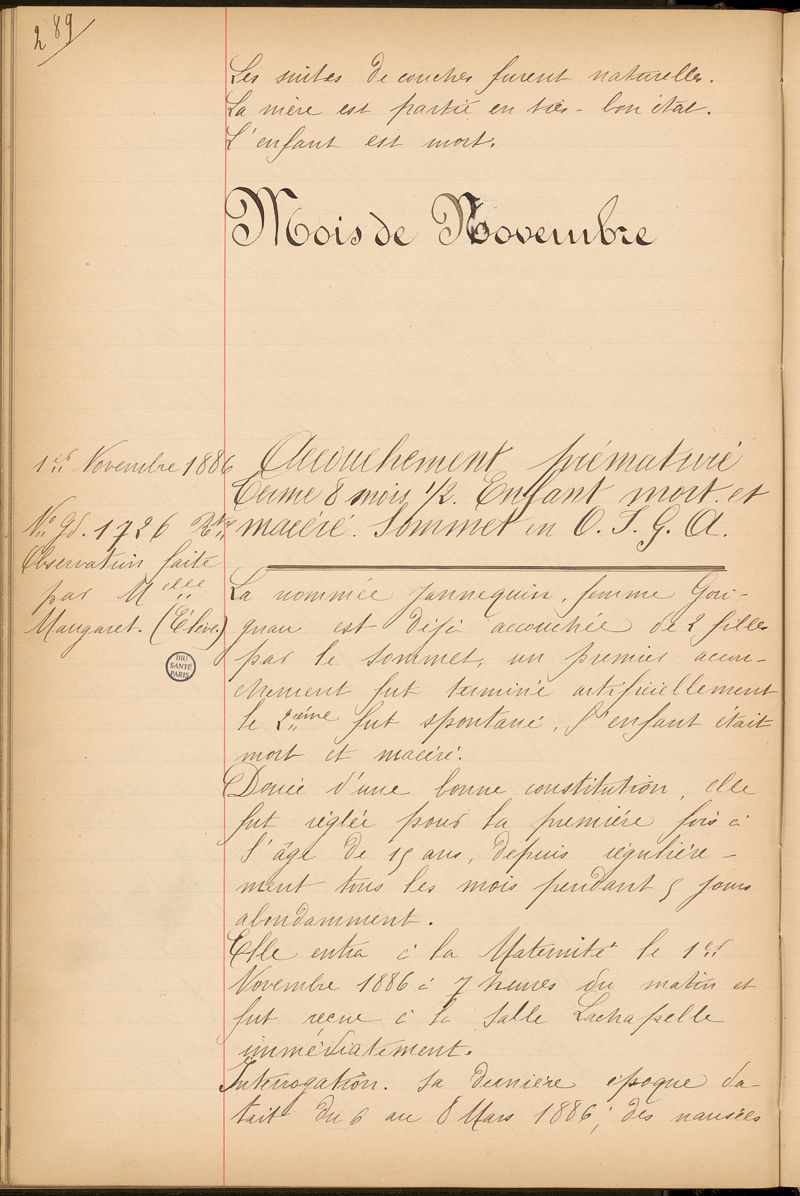 289
Les suites de couches furent naturelles.
La mère est partie en très-bon état.
L'enfant est mort.
Mois de Novembre
1er Novembre 1886
No Gd. 1726
Observation faite
par Melle
Mangaret. (Élève.)
BIU
SANTÉ
PARIS
Accouchement prématuré
Terme 8 mois 1/2. Enfant mort et
macéré. Sommet en O. I. G. A.
La nommée Jannequin, femme Goui-
gnau est déjà accouchée de 2 filles
par le sommet, un premier accou-
chement fut terminé artificiellement
le 2ième fut spontané, l'enfant était
mort et macéré.
Douée d'une bonne constitution, elle
fut réglée pour la première fois à
l'âge de 15 ans, depuis régulière-
ment tous les mois pendant 5 jours
abondamment.
Elle entra à la Maternité le 1er
Novembre 1886 à 7 heures du matin et
fut reçue à la salle Lachapelle
immédiatement.
Interrogation. Sa dernière époque da-
tait du 6 au 8 Mars 1886; des nausées